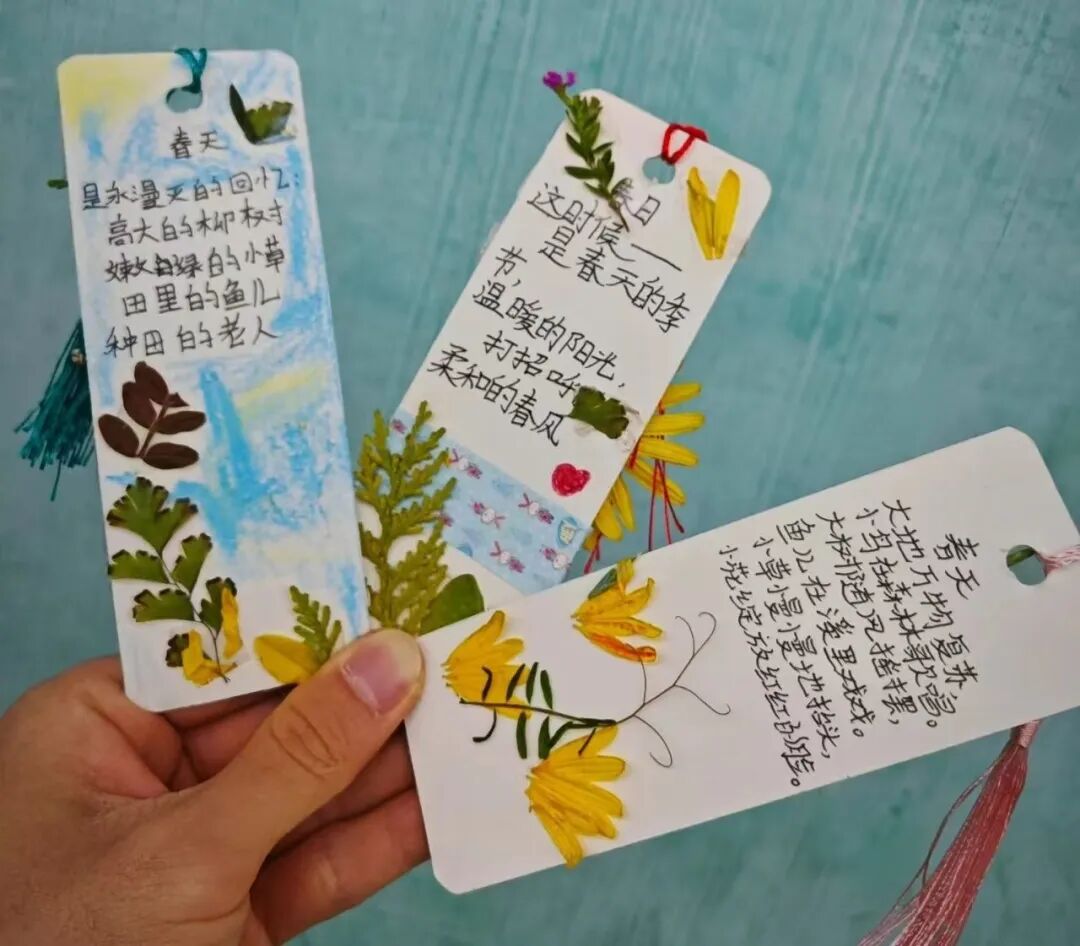 春天
是永漫天的回忆:
高大的柳树
嫩绿的小草
田里的鱼儿
种田的老人
春日
这时候——
是春天的季
节,
温暖的阳光,
打招呼
柔和的春风
春天
大地万物复苏,
小鸟在森林歌唱。
大树都随风摇摆,
鱼儿在溪里戏戏。
小草慢慢地抬头,
小花绽放红红的脸。